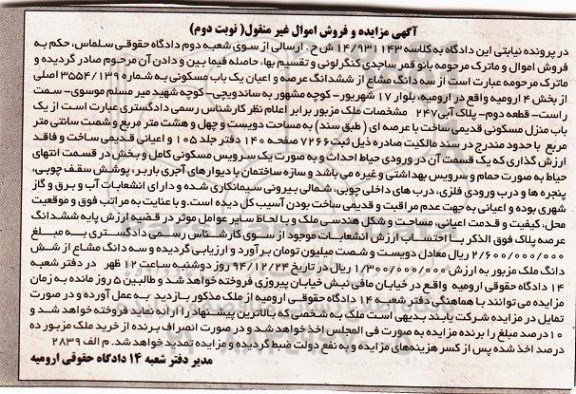 آگهی مزایده و فروش اموال غیر منقول( نوبت دوم)
در پرونده نیابتی این دادگاه به کلاسه ۱۴/۹۳۱۱۴۳ ش ح . ارسالی از سوی شعبه دوم دادگاه حقوقی سلماس، حکم به
فروش اموال و ماترک مرحومه بانو قمر ساجدی کنگرلوئی و تقسیم بها، حاصله فیما بین و دادن آن مرحوم صادر گردیده و
ماترک مرحومه عبارت است از سه دانگ مشاع از ششدانگ عرصه و اعیان یک باب مسکونی به شماره ۳۵۵۴/۱۳۹ اصلی
از بخش ۴ ارومیه واقع در ارومیه، بلوار ۱۷ شهریور - کوچه مشهور به ساندویچی- کوچه شهید میر مسلم موسوی- سمت
راست- قطعه دوم- پلاک آبی ۲۴۷ مشخصات ملک مزبور برابر اعلام نظر کارشناس رسمی دادگستری عبارت است از یک
باب منزل مسکونی قدیمی ساخت با عرصه ای ( طبق سند) به مساحت دویست و چهل و هشت متر مربع و شصت سانتی متر
مربع با حدود مندرج در سند مالکیت صادره ذیل ثبت ۷۲۶۶ صفحه ۱۴۰ دفتر جلد ۱۰۵ و اعیانی قدیمی ساخت و فاقد
ارزش گذاری که یک قسمت آن در ورودی حیاط احداث و به صورت یک سرویس مسکونی کامل و بخش در قسمت انتهای
حیاط به صورت حمام و سرویس بهداشتی و غیره می باشد و سازه ساختمان با دیوارهای آجری باربر، پوشش سقف چوبی،
پنجره ها و درب ورودی فلزی، درب های داخلی چوبی، شمالی بیرونی سیمانکاری شده و دارای انشعابات آب و برق و گاز
شهری بوده و اعیانی به جهت عدم مراقبت و قدیمی ساخت بودن آسیب کل دیده است. و با عنایت به مراتب فوق و موقعیت
محل، کیفیت و قدمت اعیانی، مساحت و شکل هندسی ملک و با لحاظ سایر عوامل موثر در قضیه ارزش پایه ششدانگ
عرصه پلاک فوق الذکر با احتساب ارزش انشعابات موجود از سوی کارشناس رسمی دادگستری به مبلغ
۲/۶۰۰/۰۰۰/۰۰۰ ریال معادل دویست و شصت میلیون تومان برآورد و ارزیابی گردیده و سه دانگ مشاع از شش
دانگ ملک مزبور به ارزش ۱/۳۰۰/۰۰۰/۰۰۰ ریال در تاریخ ۹۴/۱۲/۲۴ روز دوشنبه ساعت ۱۲ ظهر در دفتر شعبه
۱۴ دادگاه حقوقی ارومیه واقع در خیابان مافی نبش خیابان پیروزی فروخته خواهد شد و طالبین ۵ روز مانده به زمان
مزایده می توانند با هماهنگی دفتر شعبه ۱۴ دادگاه حقوقی ارومیه از ملک مذکور بازدید به عمل آورده و در صورت
تمایل در مزایده شرکت یابند بدیهی است ملک به شخصی که بالاترین پیشنهاد را ارائه نماید فروخته خواهد شد و
۱۰ درصد مبلغ را برنده مزایده به صورت فی المجلس اخذ خواهد شد و در صورت انصراف برنده از خرید ملک مزبور ده
درصد اخذ شده پس از کسر هزینه‌های مزایده و به نفع دولت ضبط گردیده و مزایده تمدید خواهد شد. م الف ۲۸۳۹
مدیر دفتر شعبه ۱۴ دادگاه حقوقی ارومیه